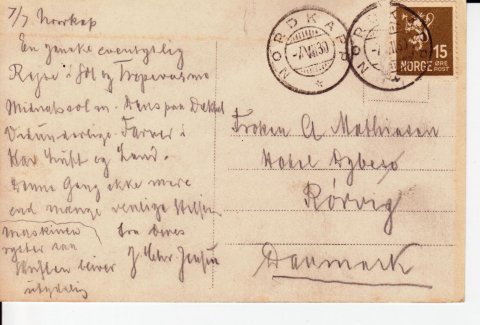 7/7 Nordkap
En ganske eventyrlig
Rejse i Sol og Tropevarme
Midnatssol m. Dans paa Dækket
Vidunderlige Farver i
Hav Luft og Land.
Denne Gang ikke mere
end mange venlige Hilsner
fra Deres
Maskinen
ryster saa
Skriften bliver
utydelig
NORDKAPP
-7.VII.30
NORDKAPP
15
NORGE
ØRE
POST
Frøken A Mathiasen
Hotel
Rørvig
Danmark